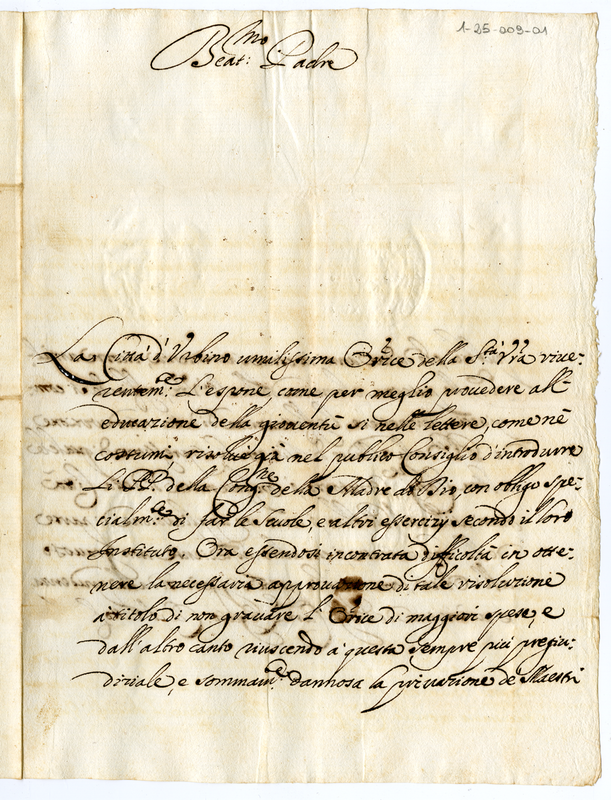 1-25-009-01
Beat.mo Padre
La Città d'Urbino umilissima Orat.ce della S.tà V.ra riue-
rentem.te L'espone, come per meglio prouedere all'
educazione della giouentù si nelle lettere, come nè
costumi, risolue già nel publico Consiglio d'introdurre
Li PP. della Cong.ne della Madre di Dio, con obligo spe-
cialm.te di far le Scuole, e altri essercizij secondo il loro
Instituto. Ora essendosi incontrata difficoltà in otte-
nere la necessaria approuazione di tale risoluzione
a titolo di non grauare l'Orat.ce di maggiori spese, e
dall'altro canto riuscendo a questa sempre più pregiu-
diziale, e sommam.te dannosa la priuazione de' Maestri